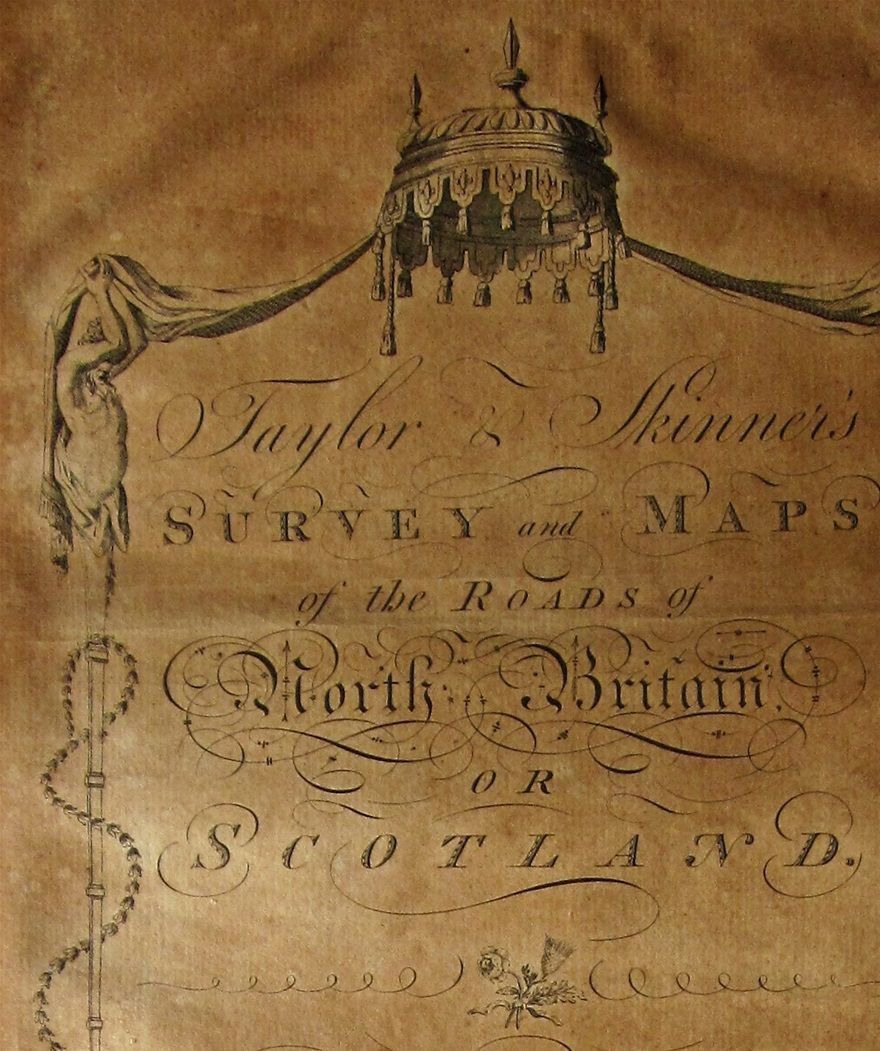 Taylor & Skinner's
SURVEY and MAPS
of the ROADS of
North Britain,
OR
SCOTLAND.